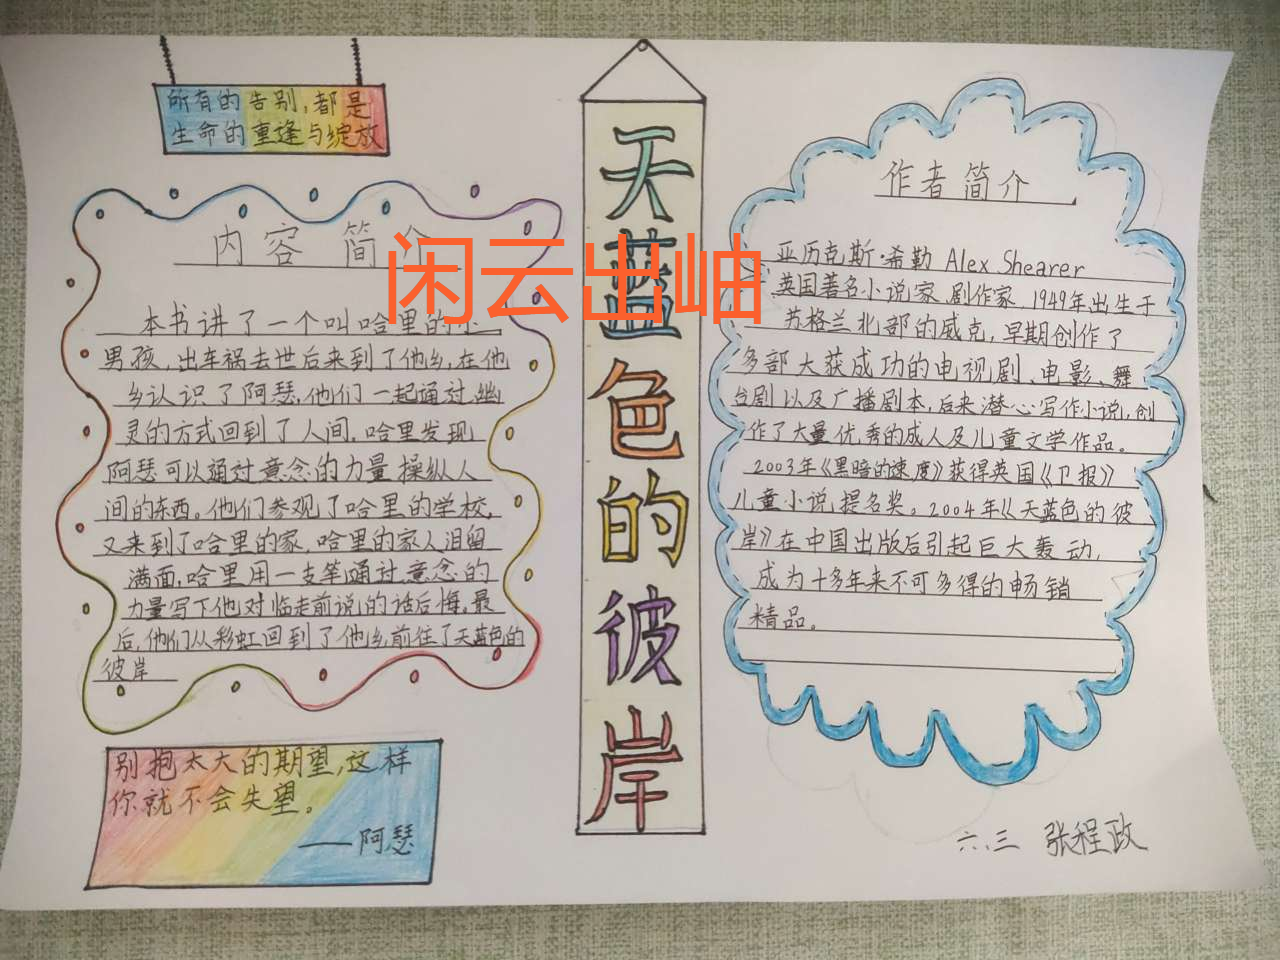 所有的告别,都是
生命的重逢与绽放
内容简介
本书讲了一个叫哈里的小
男孩,出车祸去世后来到了他乡,在他
乡认识了阿瑟,他们一起通过幽
灵的方式回到了人间,哈里发现
阿瑟可以通过意念的力量操纵人
间的东西。他们参观了哈里的学校,
又来到了哈里的家,哈里的家人泪留
满面,哈里用一支笔通过意念的
力量写下他对临走前说的话后悔,最
后,他们从彩虹回到了他乡前往了天蓝色的
彼岸
别抱太大的期望,这样
你就不会失望。
——阿瑟
天蓝色的彼岸
闲云出岫
作者简介
亚历克斯·希勒 Alex Shearer
英国著名小说家、剧作家,1949年出生于
苏格兰北部的威克,早期创作了
多部大获成功的电视剧、电影、舞
台剧以及广播剧本,后来潜心写作小说,创
作了大量优秀的成人及儿童文学作品。
2003年《黑暗的速度》获得英国《卫报》
儿童小说提名奖。2004年《天蓝色的彼
岸》在中国出版后引起巨大轰动,
成为十多年来不可多得的畅销
精品。
六.三 张程政